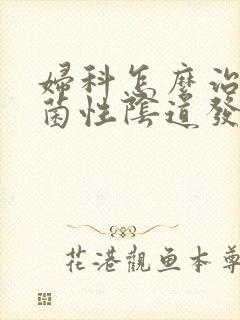 婦科怎麼治
菌性陰道發
花港觀鱼本尊